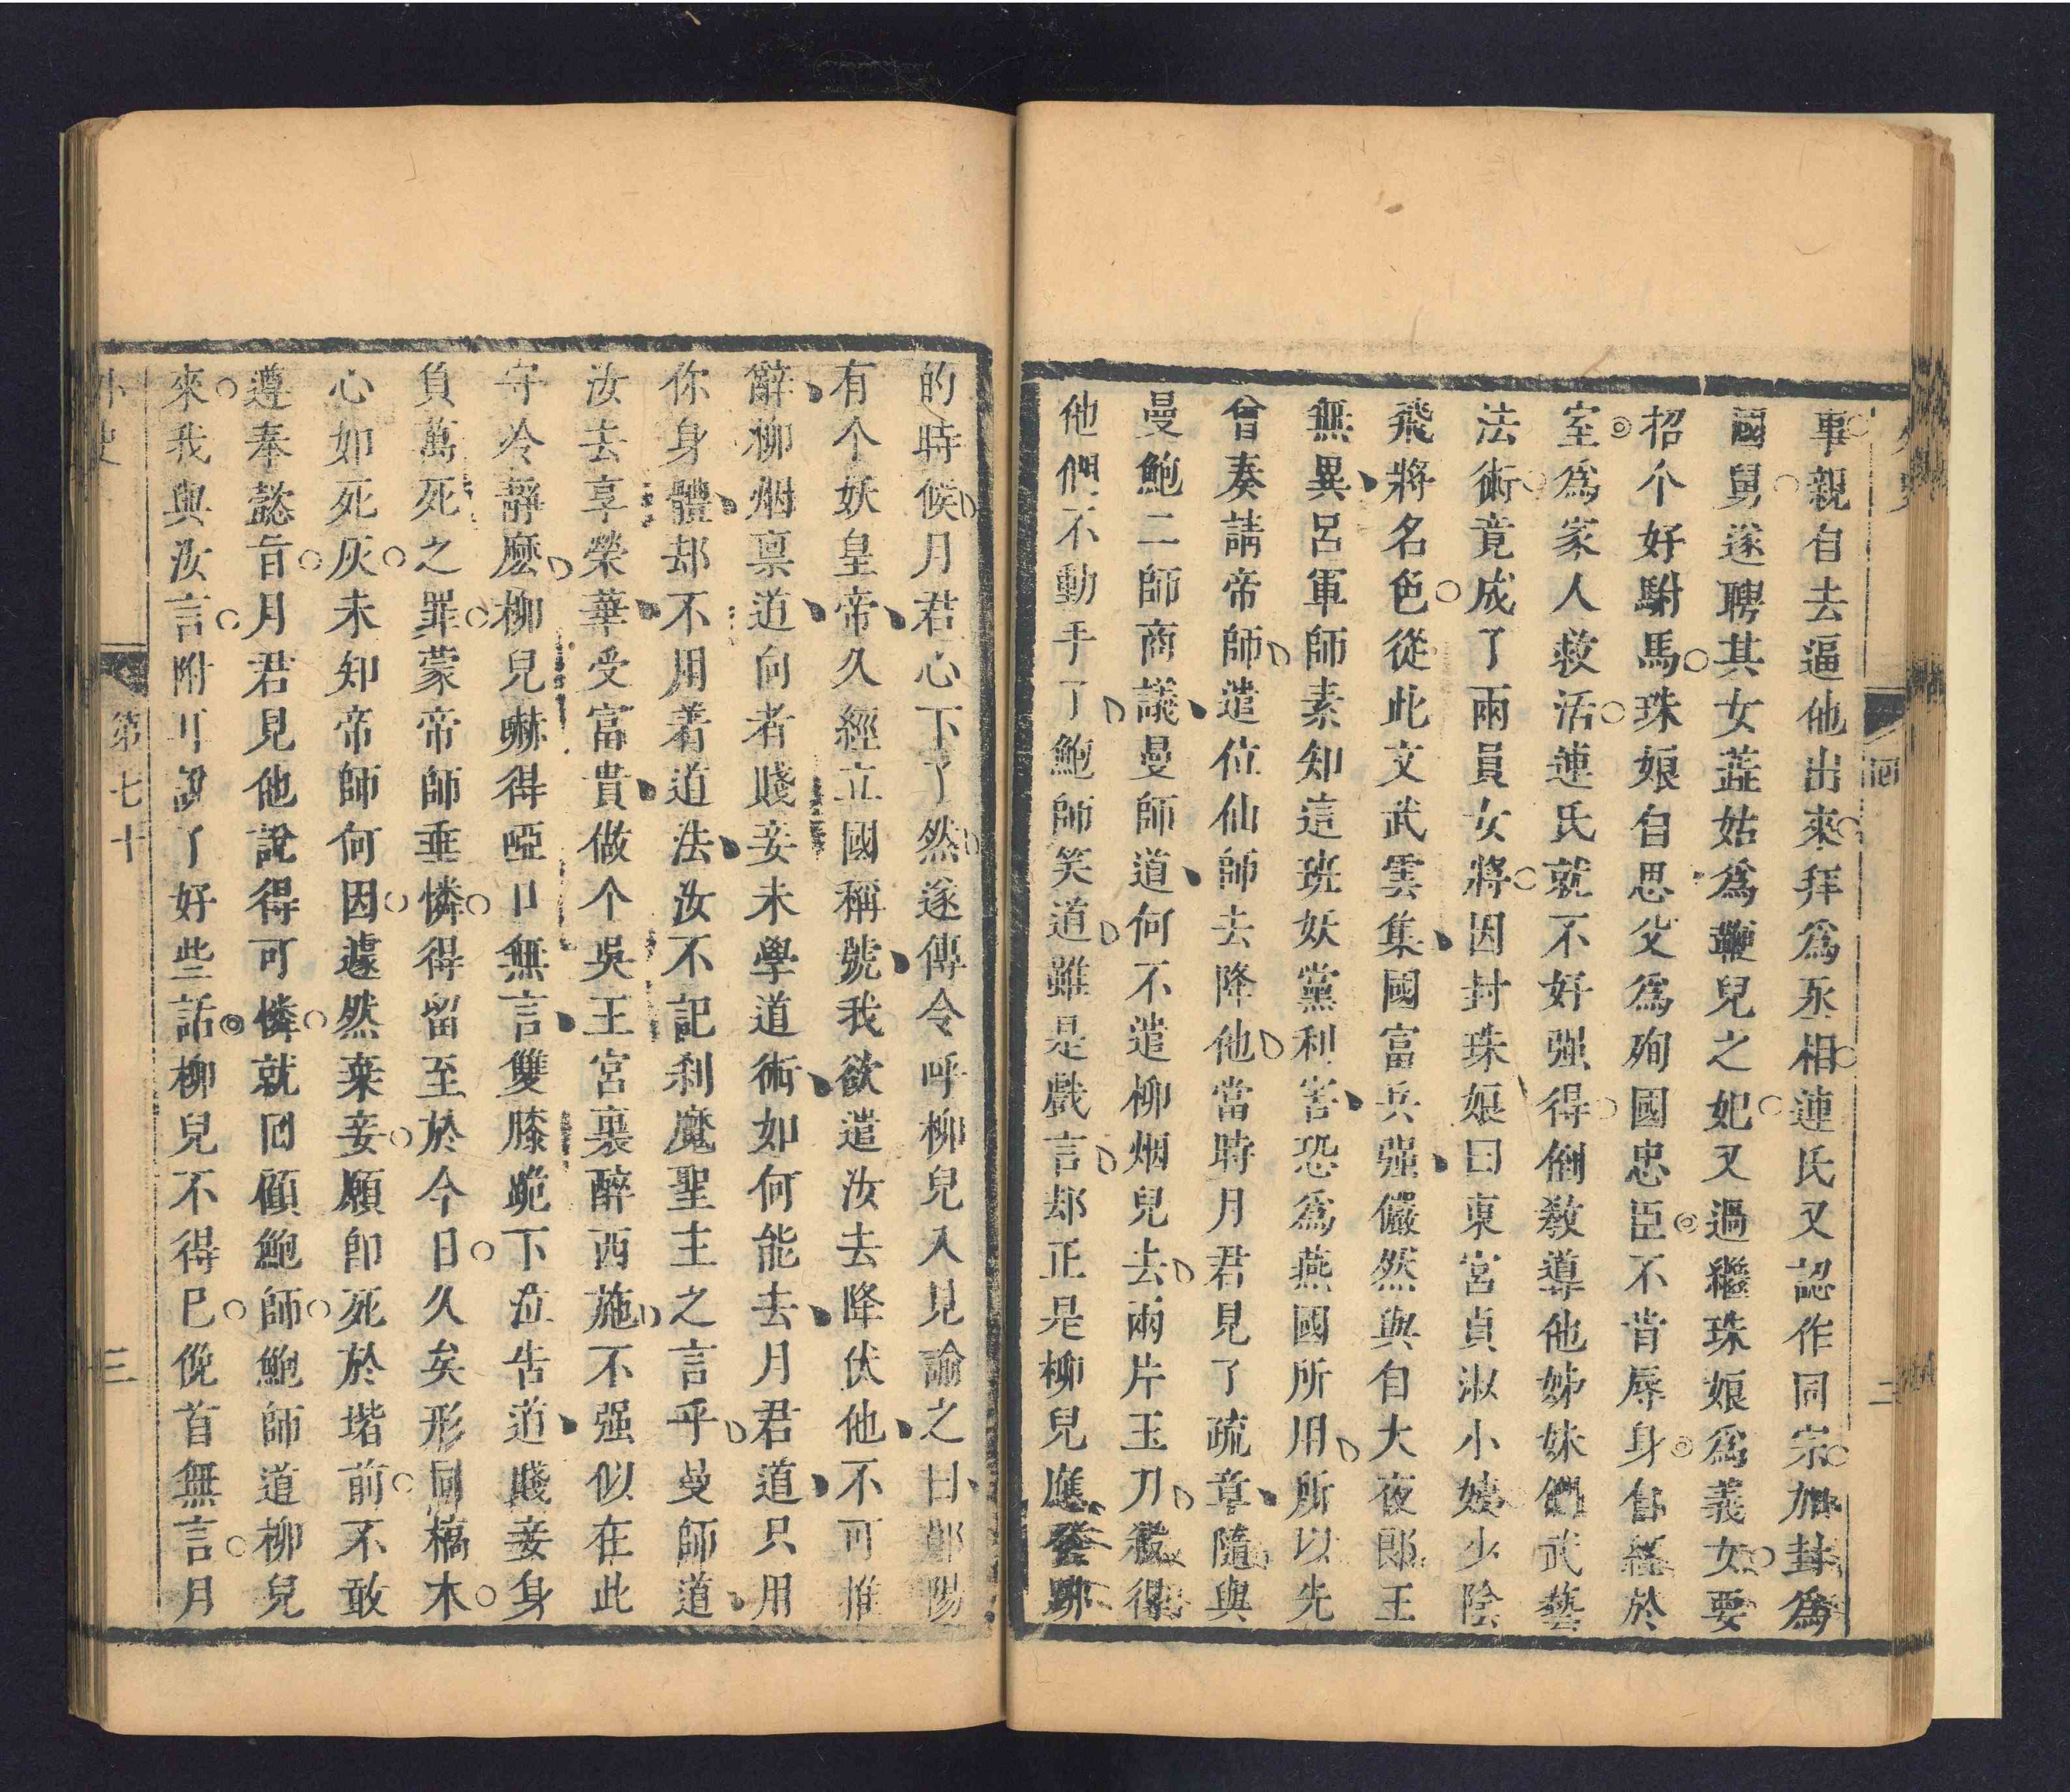 事親自去逼他出來拜爲丞相連氏又認作同宗加封爲
國舅遂聘其女蓝姑爲鞭兒之妃又過繼珠娘爲義女要
招个好駙馬珠娘自思父爲殉國忠臣不肯辱身自經於
室爲家人救活連氏就不好强得倒教導他姊妹們武藝
法術竟成了兩員女將因封珠娘曰東宮貞淑小娥少陰
飛將名色從此文武雲集國富兵强儼然與自大夜郎王
無異呂軍師素知這班妖黨利害恐爲燕國所用所以先
曾奏請帝師遣位仙師去降他當時月君見了疏章隨與
曼鮑二師商議曼師道何不遣柳烟兒去兩片玉刀殺得
他們不動手了鮑師笑道雖是戲言却正是柳兒應發跡
的時候月君心下了然遂傳令呼柳兒入見諭之曰鄖陽
有个妖皇帝久經立國稱號我欲遣汝去降伏他不可推
辭柳烟禀道向者賤妾未學道術如何能去月君道只用
你身體却不用着道法汝不記刹魔聖主之言乎曼師道
汝去享榮華受富貴做个吳王宮裏醉西施不强似在此
守冷靜麽柳兒嚇得啞口無言雙膝跪下泣告道賤妾身
負萬死之罪蒙帝師垂憐得留至於今日久矣形同槁木
心如死灰未知帝師何因遽然棄妾願卽死於堦前不敢
遵奉懿旨月君見他說得可憐就囘顧鮑師鮑師道柳兒
來我與汝言附耳說了好些話柳兒不得已俛首無言月
外史
第七十
三